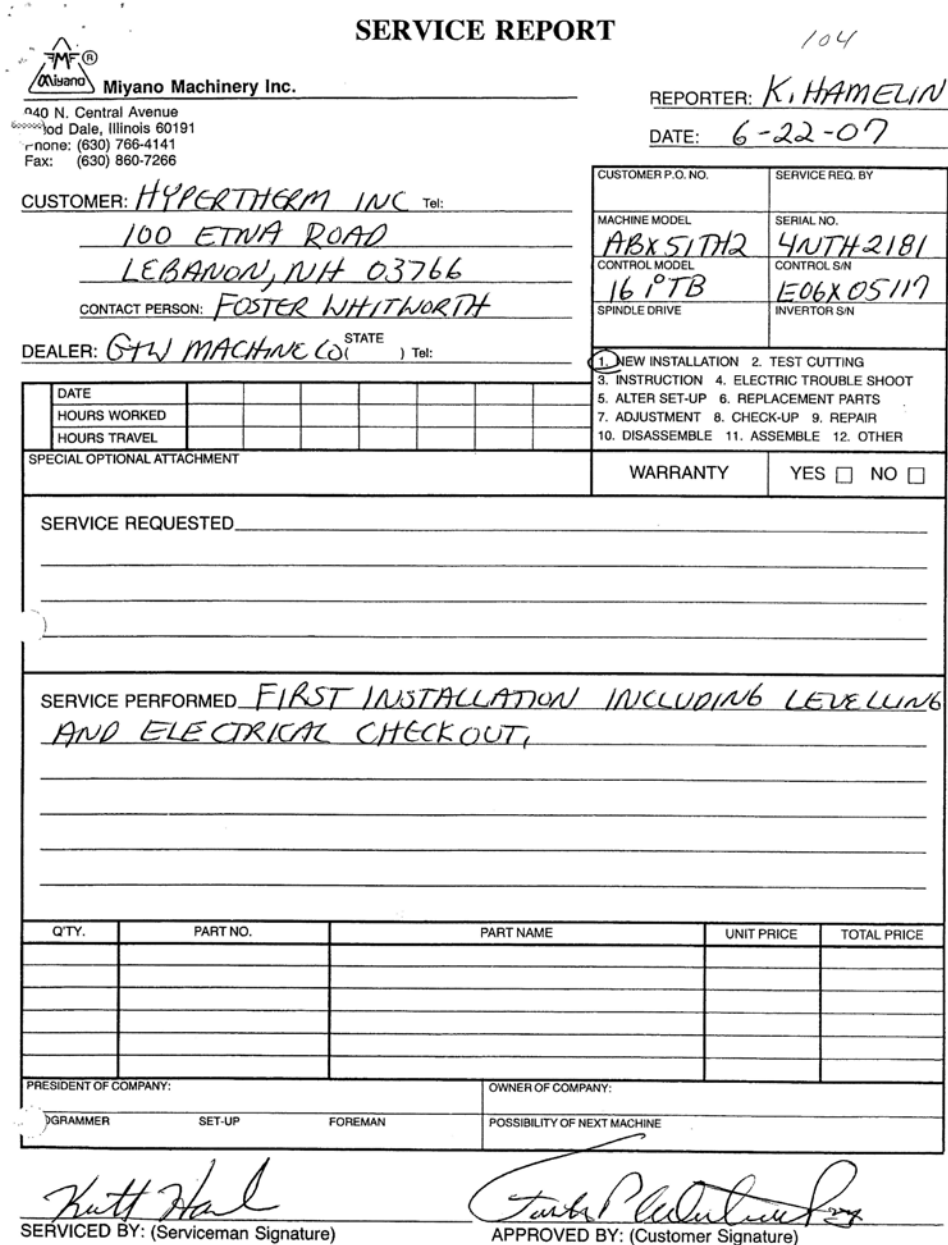 SERVICE REPORT
104
FMF ®
Miyano
Miyano Machinery Inc.
940 N. Central Avenue
ood Dale, Illinois 60191
Phone: (630) 766-4141
Fax: (630) 860-7266
REPORTER: K. HAMELIN
DATE: 6-22-07
CUSTOMER: HYPERTHERM INC Tel:
100 ETNA ROAD
LEBANON, NH 03766
CONTACT PERSON: FOSTER WHITWORTH
DEALER: GTW MACHINE CO (STATE ) Tel:
CUSTOMER P.O. NO. SERVICE REQ. BY
MACHINE MODEL SERIAL NO.
ABX51TH2 4NTH2181
CONTROL MODEL CONTROL S/N
16 iTB E06X05117
SPINDLE DRIVE INVERTOR S/N
1. NEW INSTALLATION 2. TEST CUTTING
3. INSTRUCTION 4. ELECTRIC TROUBLE SHOOT
5. ALTER SET-UP 6. REPLACEMENT PARTS
7. ADJUSTMENT 8. CHECK-UP 9. REPAIR
10. DISASSEMBLE 11. ASSEMBLE 12. OTHER
DATE
HOURS WORKED
HOURS TRAVEL
SPECIAL OPTIONAL ATTACHMENT
WARRANTY YES □ NO □
SERVICE REQUESTED
SERVICE PERFORMED FIRST INSTALLATION INCLUDING LEVELLING
AND ELECTRICAL CHECKOUT,
Q'TY. PART NO. PART NAME UNIT PRICE TOTAL PRICE
PRESIDENT OF COMPANY: OWNER OF COMPANY:
OGRAMMER SET-UP FOREMAN POSSIBILITY OF NEXT MACHINE
SERVICED BY: (Serviceman Signature) APPROVED BY: (Customer Signature)